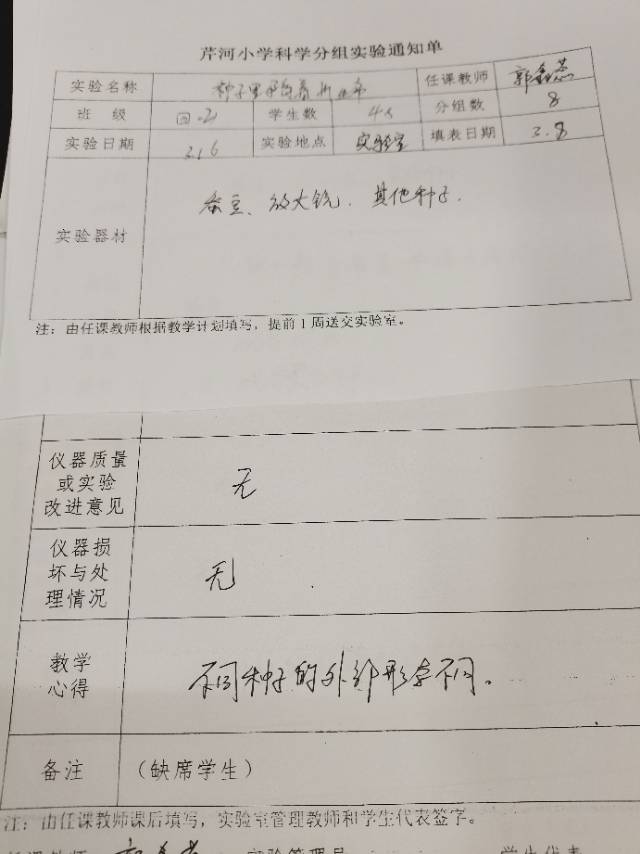 芹河小学科学分组实验通知单
实验名称 种子里孕育着新生命 任课教师 郭
班 级 四.2 学生数 45 分组数 8
实验日期 2.16 实验地点 实验室 填表日期 2.8
实验器材 蚕豆、放大镜、其他种子.
注：由任课教师根据教学计划填写，提前1周送交实验室。
仪器质量
或实验
改进意见 无
仪器损
坏与处
理情况 无
教学
心得 不同种子的外部形态不同。
备注 （缺席学生）
注：由任课教师课后填写，实验室管理教师和学生代表签字。